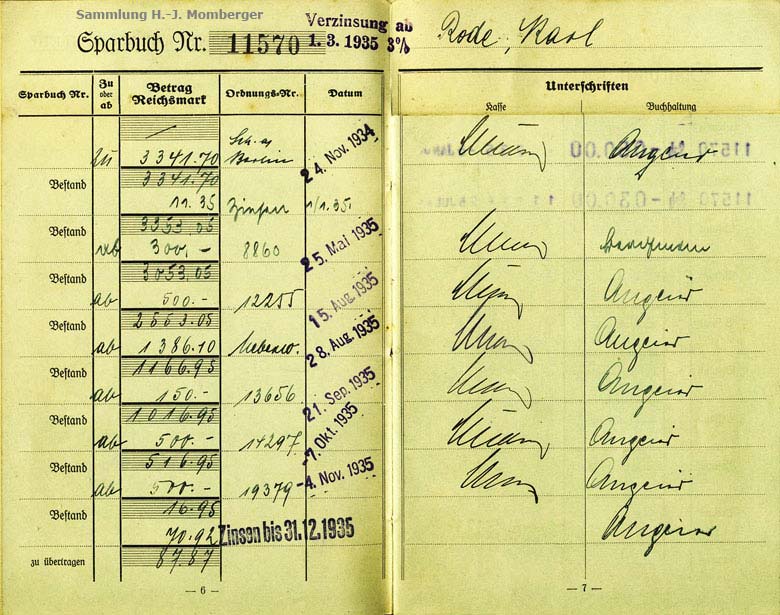 Sammlung H.-J. Momberger
Sparbuch Nr. 11570
Verzinsung ab
1. 3. 1935 3%
Rode, Karl
Sparbuch Nr. Zu oder ab Betrag Reichsmark Ordnungs-Nr. Datum
Unterschriften
Kasse Buchhaltung
zu 3341.70 Berlin 24. Nov. 1934
Bestand 3341.70
11.35 Zinsen 1/1.35
Bestand 3353.05
ab 300,- 8860 25. Mai 1935
Bestand 3053,05
ab 500.- 12255 15. Aug. 1935
Bestand 2553.05
ab 1386.10 28. Aug. 1935
Bestand 1166.95
ab 150.- 13656 21. Sep. 1935
Bestand 1016.95
ab 500.- 14297 -7. Okt. 1935
Bestand 516.95
ab 500.- 19379 -4. Nov. 1935
Bestand 16.95
70.92 Zinsen bis 31.12.1935
zu übertragen 87.87
- 6 -
- 7 -